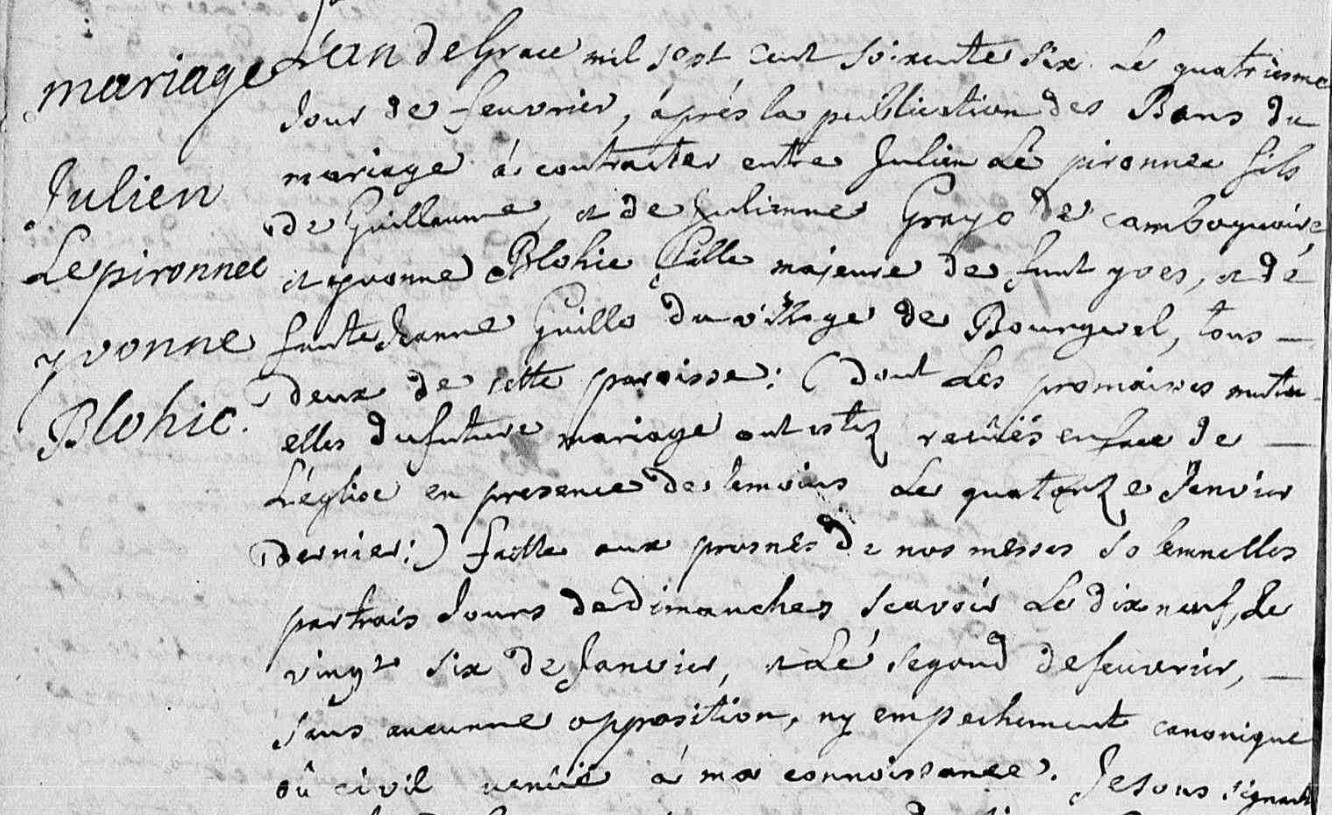 mariage
Julien
Le pironnec
yvonne
Blohic.
L'an de Grace mil sept cent soixente six Le quatriesme
Jour de feuvrier, áprés la publication des Bans du
mariage á contracter entre Julien Le pironnec fils
de Guillaume, et de Julienne Grayo de camboguoire,
et yvonne Blohic fille majeure de funt yves, et de
funte Jeanne Guillo du village de Bourgerel, tous —
deux de cette paroisse: (dont Les promaisses mutu-
elles du future mariage ont estez recuës en face de —
L'église en presence de temoins Le quatorze Janvier
Dernier:) faitte aux prosnes de nos messes solemnelles
par trois Jours de Dimanches scavoir Le dix neuf, Le
vingt six de Janvier, et Le segond de feuvrier, —
sans aucunne opposition, ny empechement canonique
oû civil venüe á ma connoissance. Je sous signant